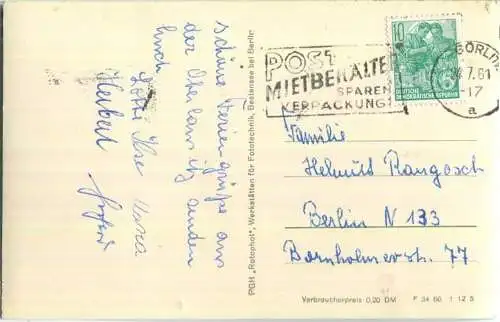 schöne Feriengrüße aus
der Oberlausitz senden
Euch
Lotte Ilse
Herbert
PGH „Rotophot", Werkstätten für Fototechnik, Bestensee bei Berlin
POST
MIETBEHÄLTER
SPAREN
VERPACKUNG!
10
DEUTSCHE
DEMOKRATISCHE REPUBLIK
GÖRLITZ
7.61
-17
a
Familie
Helmut Rangosch
Berlin N 133
Bornholmer str. 77
Verbraucherpreis 0,20 DM
F 34 60 1 12 5